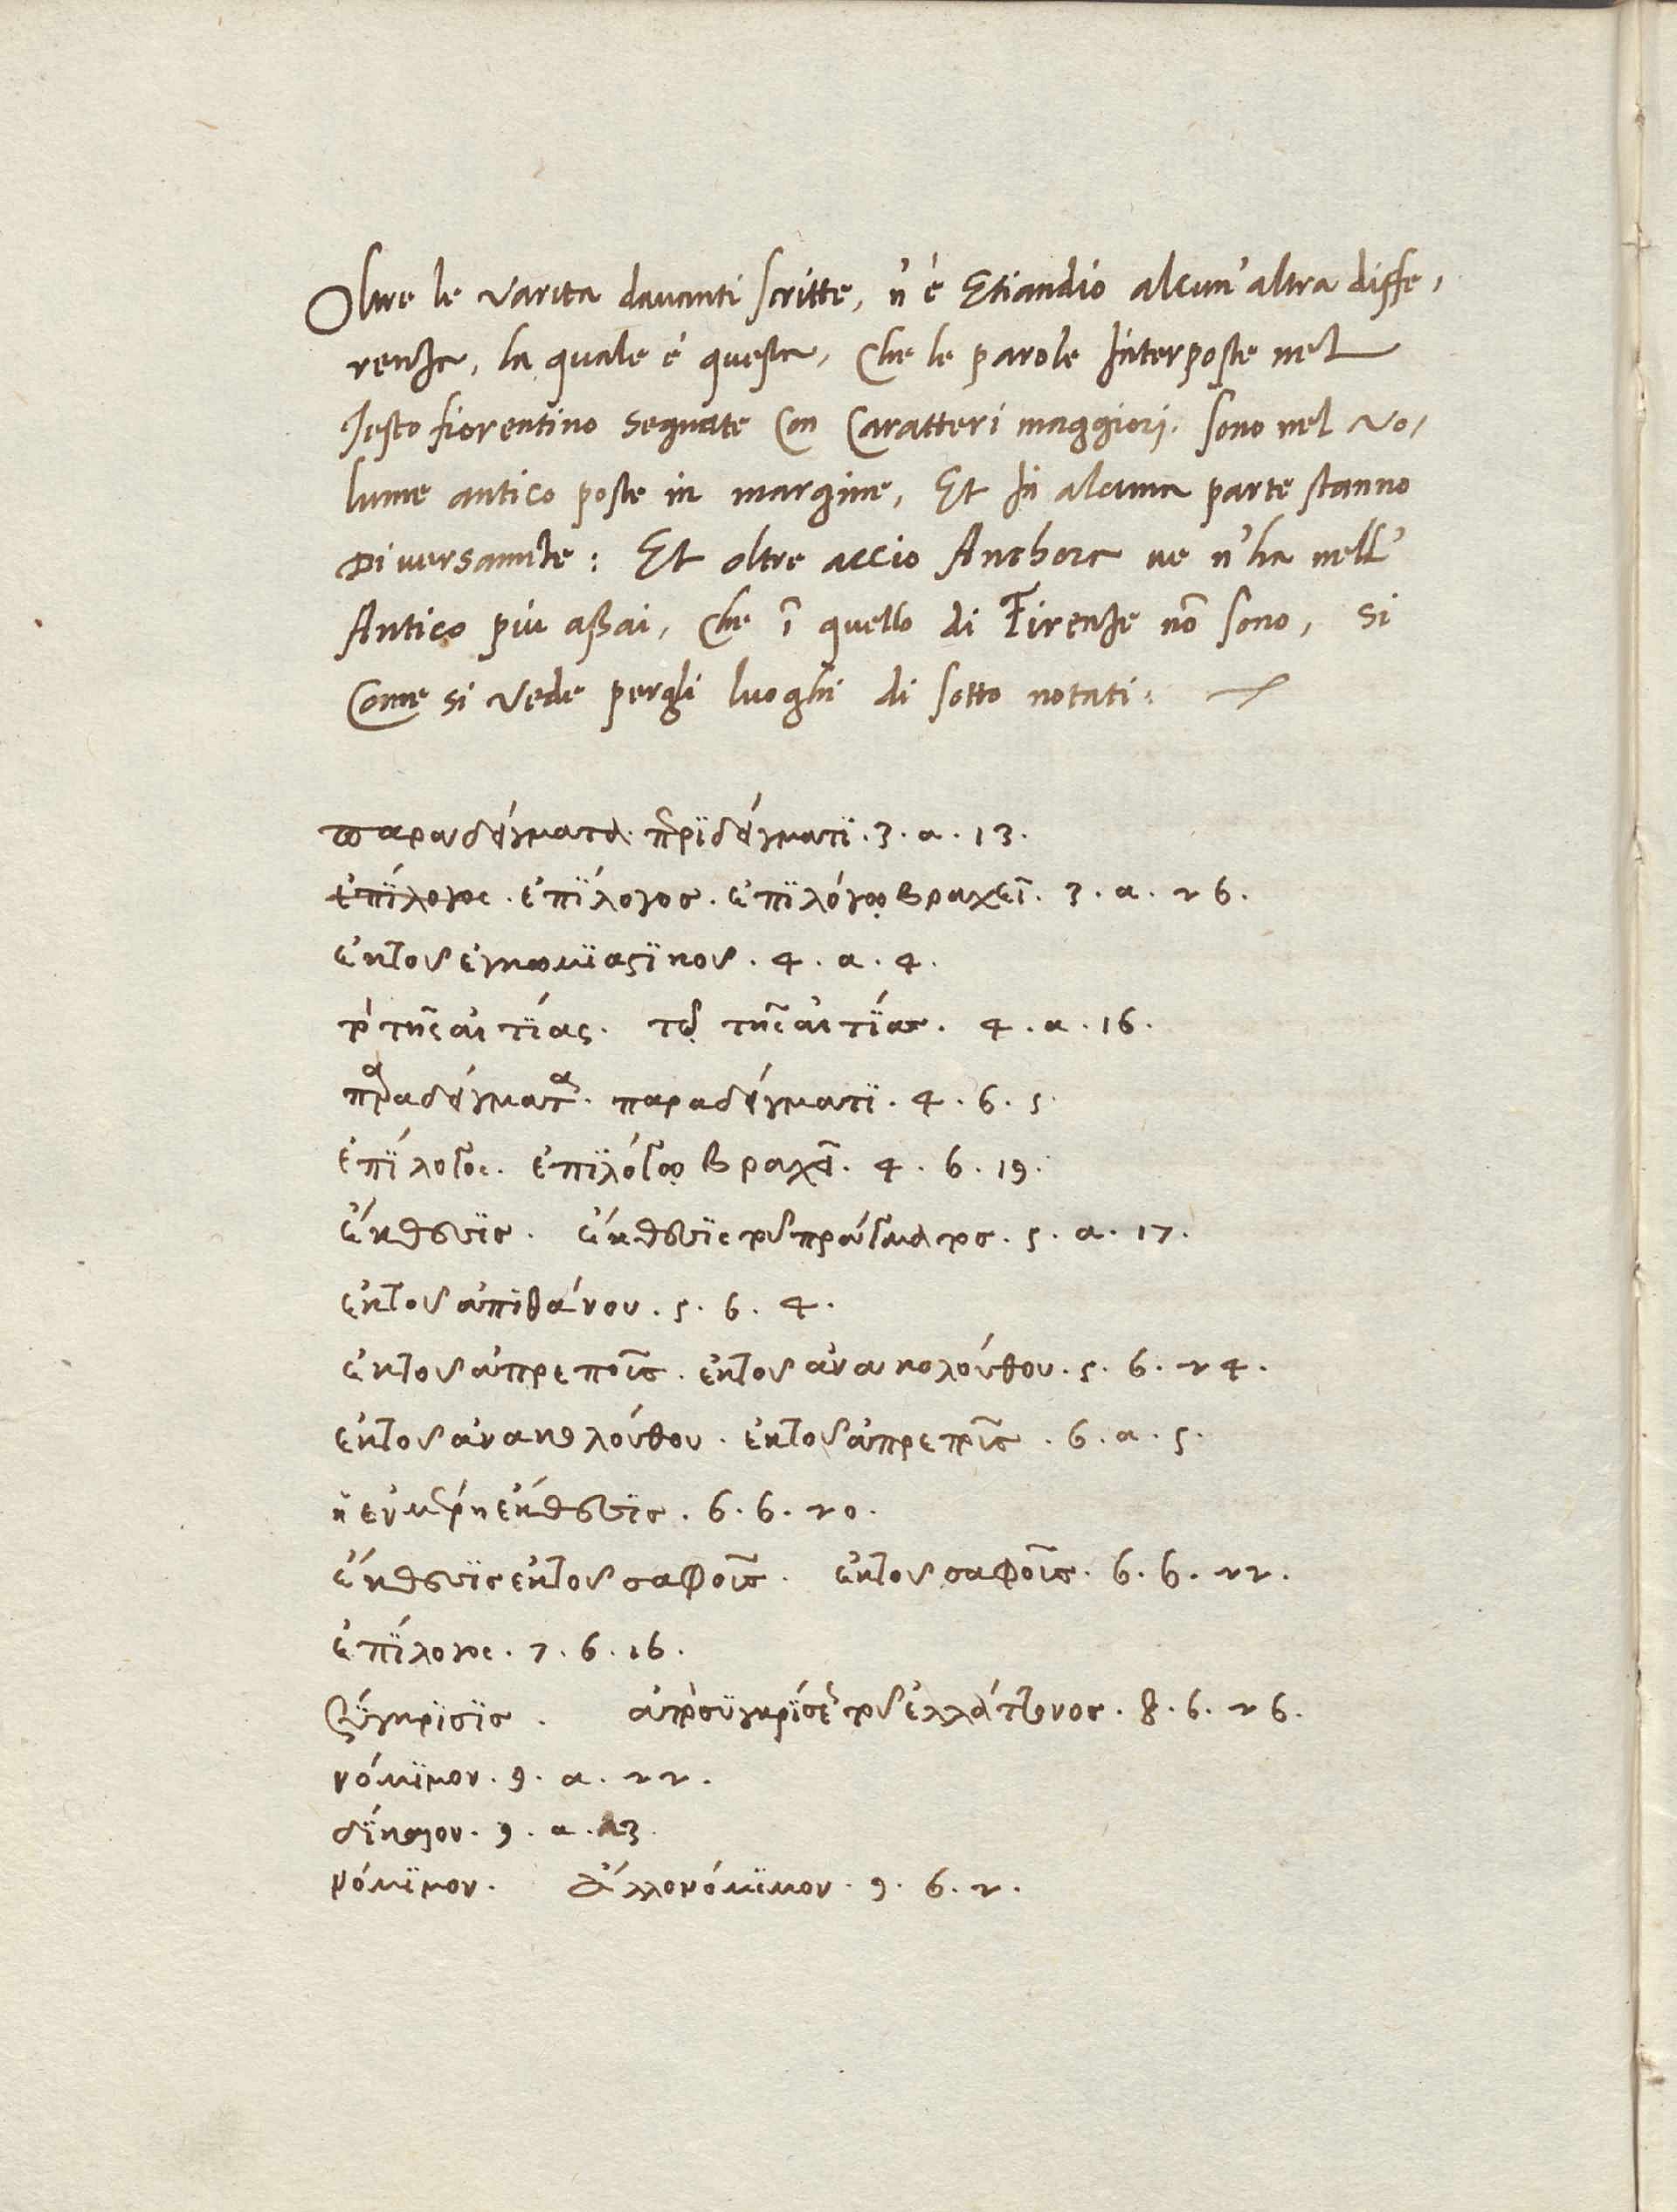 Oltre le varita davanti scritte, n'è Etiandio alcun'altra diffe,
renza, la quale è questa, Che le parole Interposte nel
Testo fiorentino segnate Con Caratteri maggiori. sono nel vo,
lume antico poste in margine, Et In alcuna parte stanno
Diversamte: Et oltre accio Anchora ve n'ha nell'
Antico piu assai, Che ī quello di Firenze nō sono, si
Come si vede per gli luoghi di sotto notati:
παραδείγματα. παραδείγματϊ. 3. a. 13.
ἐπίλογος. ἐπϊλογος. ἐπϊλόγῳ βραχεῖ. 3. a. 26.
ἐκτοῦ ἐγκωμϊαςϊκοῦ. 4. a. 4.
τὸ τῆς αἰτΐας. τῷ τῆς αἰτΐας. 4. a. 16.
παραδείγματα. παραδείγματϊ. 4. 6. 5.
ἐπΐλογος. ἐπϊλόγῳ βραχεῖ. 4. 6. 19.
ἔκθεσϊς. ἔκθεσϊς τοῦ πράγματος. 5. a. 17.
ἐκτοῦ ἀπιθάνου. 5. 6. 4.
ἐκτοῦ ἀπρεποῦς. ἐκτοῦ ἀνακολούθου. 5. 6. 24.
ἐκτοῦ ἀνακολούθου. ἐκτοῦ ἀπρεποῦς. 6. a. 5.
ἔκθεσϊς. 6. 6. 20.
ἔκθεσϊς ἐκτοῦ σαφοῦς. ἐκτοῦ σαφοῦς. 6. 6. 22.
ἐπΐλογος. 7. 6. 16.
σύγκρϊσϊς. ἀπὸ συγκρΐσεως τοῦ ἐλλάττονος. 8. 6. 26.
νόμϊμον. 9. a. 22.
δΐκαιον. 9. a. 23.
νόμϊμον. ἄλλο νόμϊμον. 9. 6. 2.